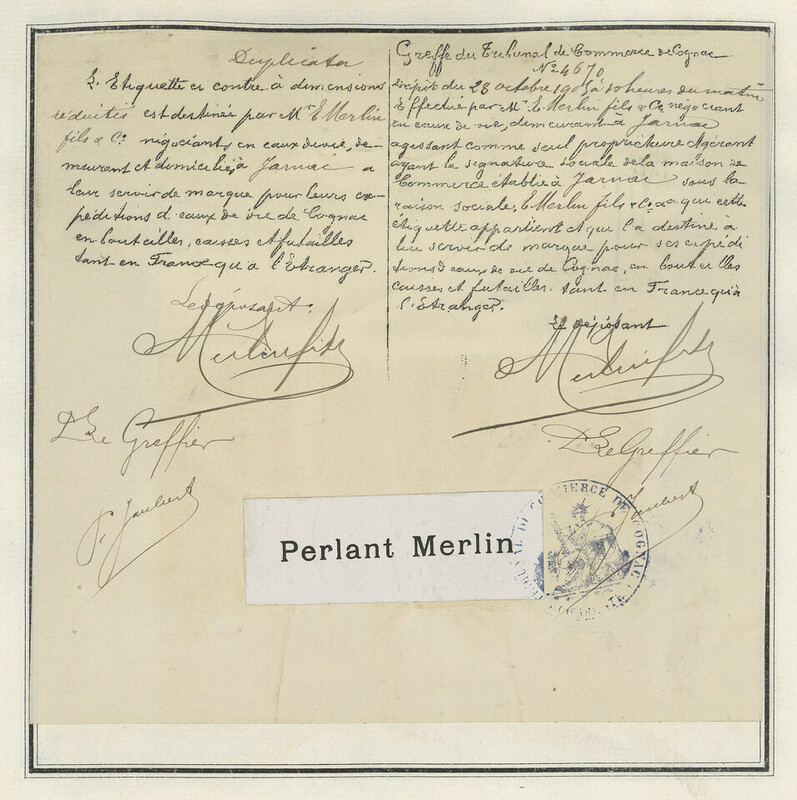 Duplicata
L'Etiquette ci contre à dimensions
réduites est destinée par Mr E Merlin
fils & Co négociants en eaux de vie, de-
meurant et domiciliés à Jarnac a
leur servir de marque pour leurs ex-
péditions d'eaux de vie de Cognac
en bouteilles, caisses et futailles
tant en France qu'à l'Etranger.
Le déposant:
Merlin fils
Le Greffier
P. Jaubert
Greffe du Tribunal de Commerce de Cognac
No 4670
Dépôt du 28 octobre 1905 à 10 heures du matin
Effectué par Mr E Merlin fils & Co négociant
en eaux de vie, demeurant à Jarnac
agissant comme seul propriétaire & gérant
ayant la signature sociale de la maison de
Commerce établie à Jarnac sous la
raison sociale, E Merlin fils & Co a qui cette
étiquette appartient et qui l'a destiné à
lui servir de marque pour ses expédi
tions d'eaux de vie de Cognac, en bouteilles
caisses et futailles. tant en France qu'à
l'Etranger.
Le déposant
Merlin fils
Le Greffier
Jaubert
Perlant Merlin
TRIBUNAL DE COMMERCE DE COGNAC